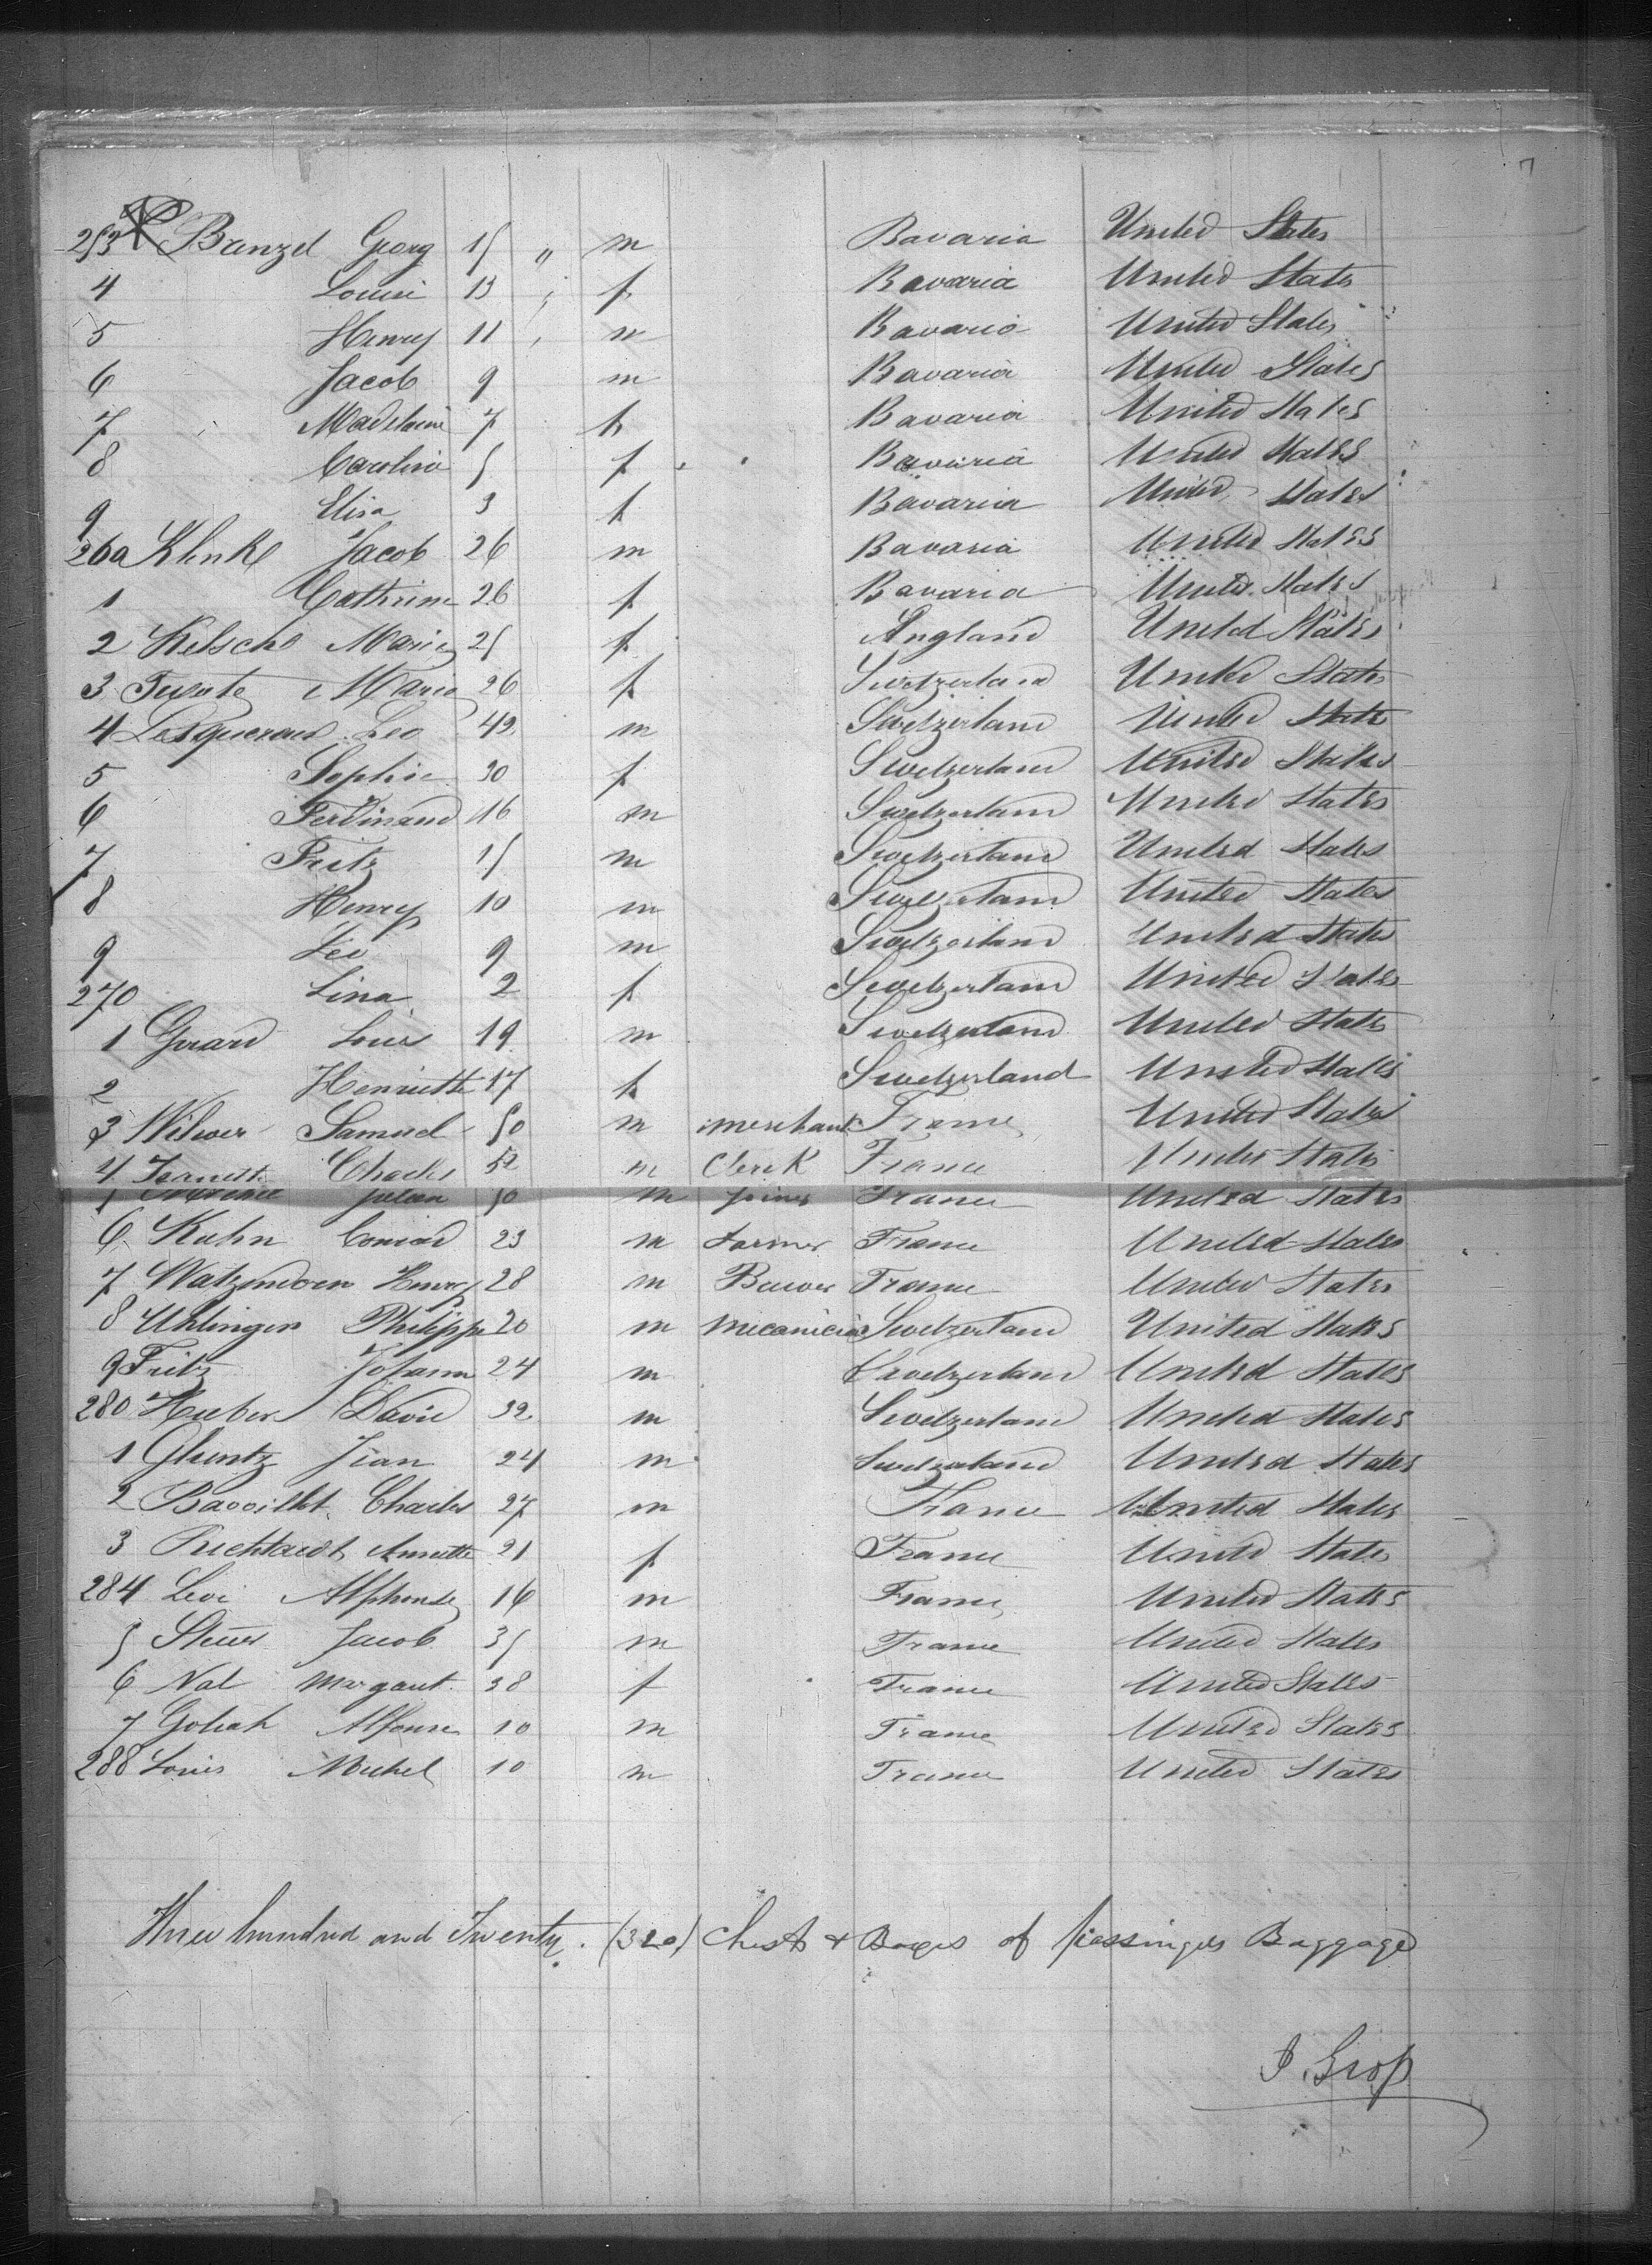 253 Banzel Georg 15 " m Bavaria United States
4 Louise 13 f Bavaria United States
5 Henry 11 m Bavaria United States
6 Jacob 9 m Bavaria United States
7 Madelaine 7 f Bavaria United States
8 Carolina 5 f Bavaria United States
9 Elisa 3 f Bavaria United States
260 Klinke Jacob 26 m Bavaria United States
1 Catherine 26 f Bavaria United States
2 Kelsche Marie 25 f England United States
3 Maria 26 f Switzerland United States
4 Lesquereux Leo 42 m Switzerland United States
5 Sophie 30 f Switzerland United States
6 Ferdinand 16 m Switzerland United States
7 Fritz 15 m Switzerland United States
8 Henry 10 m Switzerland United States
9 Leo 9 m Switzerland United States
270 Lina 2 f Switzerland United States
1 Girard Louis 19 m Switzerland United States
2 Henriette 17 f Switzerland United States
3 Samuel 50 m merchant France United States
4 Charles 52 m Clerk France United States
5 Julien 30 m Joiner France United States
6 Kuhn Conrad 23 m farmer France United States
7 Henry 28 m France United States
8 Uhlinger Philippe 20 m mecanician Switzerland United States
9 Fritz Johann 24 m Switzerland United States
280 Huber David 32 m Switzerland United States
1 Gluntz Jean 24 m Switzerland United States
2 Charles 27 m France United States
3 Annette 21 f France United States
284 Levi Alphonse 16 m France United States
5 Jacob 35 m France United States
6 Nat Margaret 38 f France United States
7 Goliath Alfonse 10 m France United States
288 Louis Michel 10 m France United States
Three hundred and Twenty. (320) Chests & Boxes of passingers Baggage